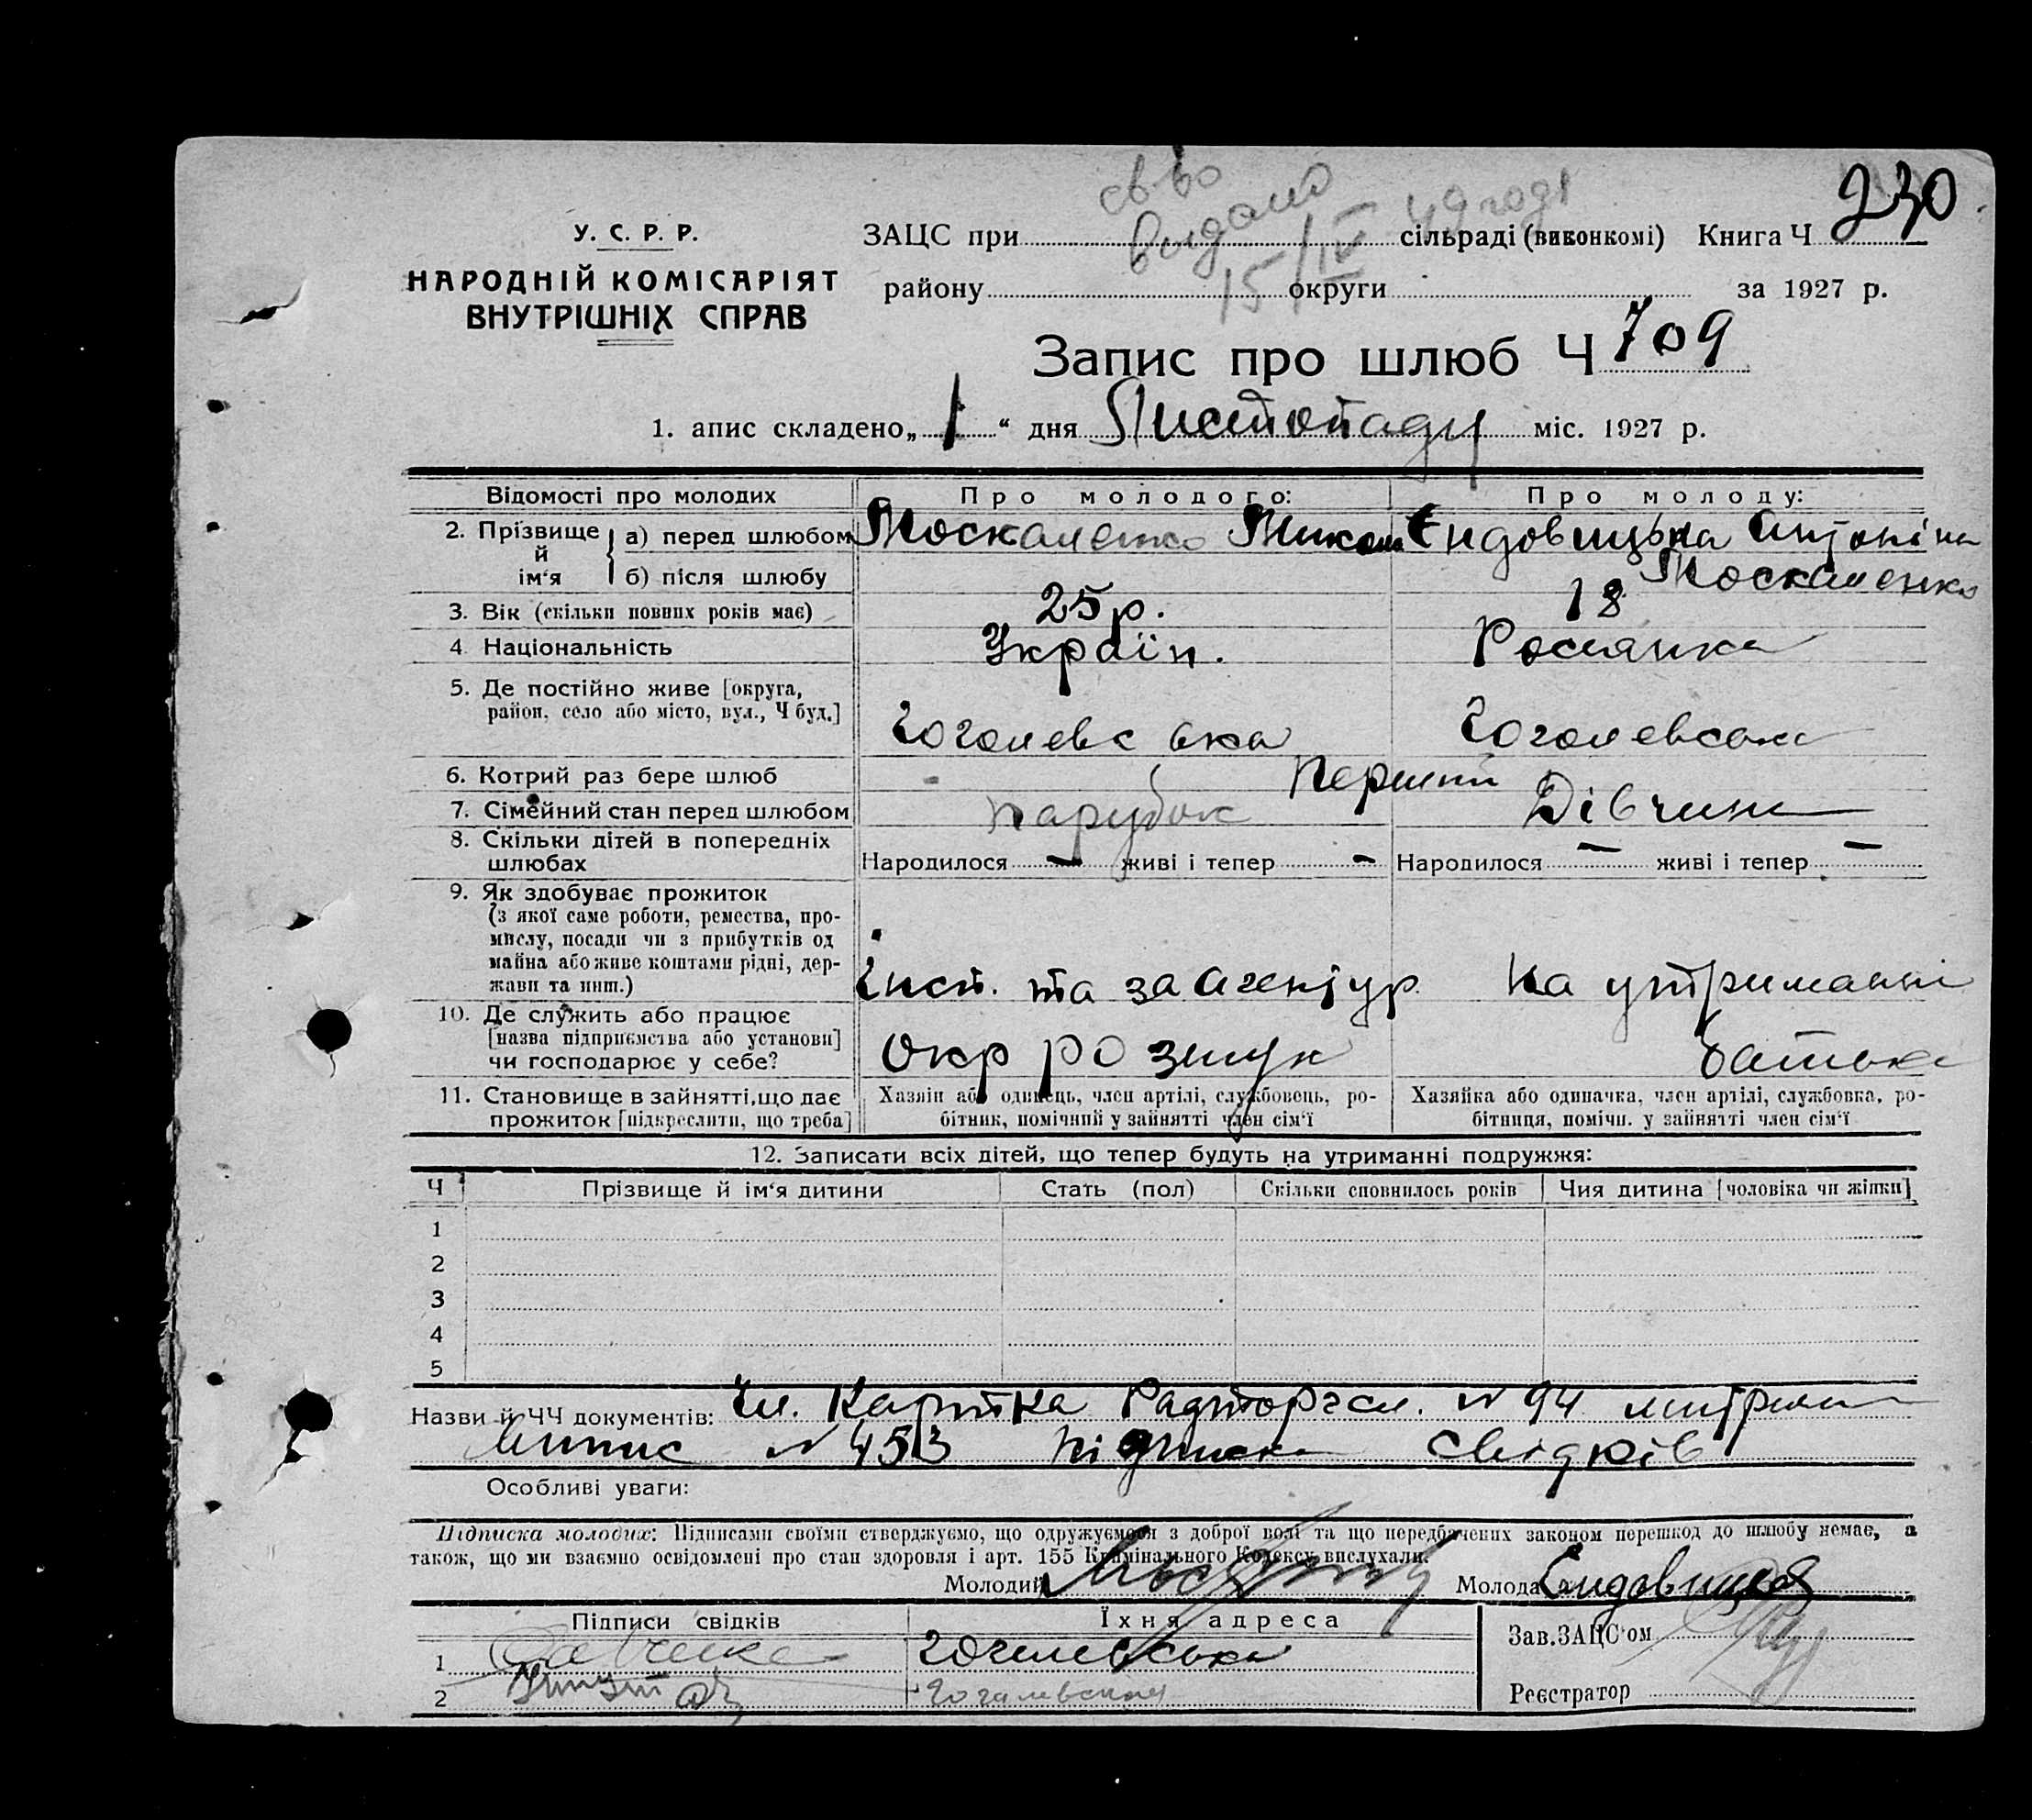 230
св во
видано
15/IV 49 годі
У. С. Р. Р.
НАРОДНІЙ КОМІСАРІЯТ
ВНУТРІШНІХ СПРАВ
ЗАЦС при сільраді (виконкомі) Книга Ч
району округи за 1927 р.
Запис про шлюб Ч 709
1. апис складено „1“ дня Листопаду міс. 1927 р.
Відомості про молодих Про молодого: Про молоду:
2. Прізвище й ім‘я а) перед шлюбом Москаленко Микола Єндовицька Антоніна
б) після шлюбу Москаленко
3. Вік (скільки повних років має) 25 р. 18
4. Національність Україн. Росіянка
5. Де постійно живе [округа,
район, село або місто, вул., Ч буд.] Гоголевська Гоголевська
6. Котрий раз бере шлюб Перший
7. Сімейний стан перед шлюбом парубок Дівчина
8. Скільки дітей в попередніх
шлюбах Народилося — живі і тепер — Народилося — живі і тепер —
9. Як здобуває прожиток
(з якої саме роботи, ремества, про-
мислу, посади чи з прибутків од
майна або живе коштами рідні, дер-
жави та инш.) Інст. та за агентур На утриманні
10. Де служить або працює
[назва підприємства або установи]
чи господарює у себе? Окр розшук батька
11. Становище в зайнятті, що дає
прожиток [підкреслити, що треба]
Хазяін або одинець, член артілі, службовець, ро-
бітник, помічний у зайнятті член сім‘ї
Хазяйка або одиначка, член артілі, службовка, ро-
бітниця, помічн. у зайнятті член сім‘ї
12. Записати всіх дітей, що тепер будуть на утриманні подружжя:
Ч Прізвище й ім‘я дитини Стать (пол) Скільки сповнилось років Чия дитина [чоловіка чи жінки]
1
2
3
4
5
Назви й ЧЧ документів: Чл. Картка Радторгсл. № 94 метрична
Випис № 453 підписка свідків
Особливі уваги:
Підписка молодих: Підписами своїми стверджуємо, що одружуємося з доброї волі та що передбачених законом перешкод до шлюбу немає, а
також, що ми взаємно освідомлені про стан здоровля і арт. 155 Крімінального Кодексу вислухали.
Молодий Молода Єндовицкая
Підписи свідків Їхня адреса Зав. ЗАЦС‘ом
1 Гоголевська
2 Гоголевская Реєстратор